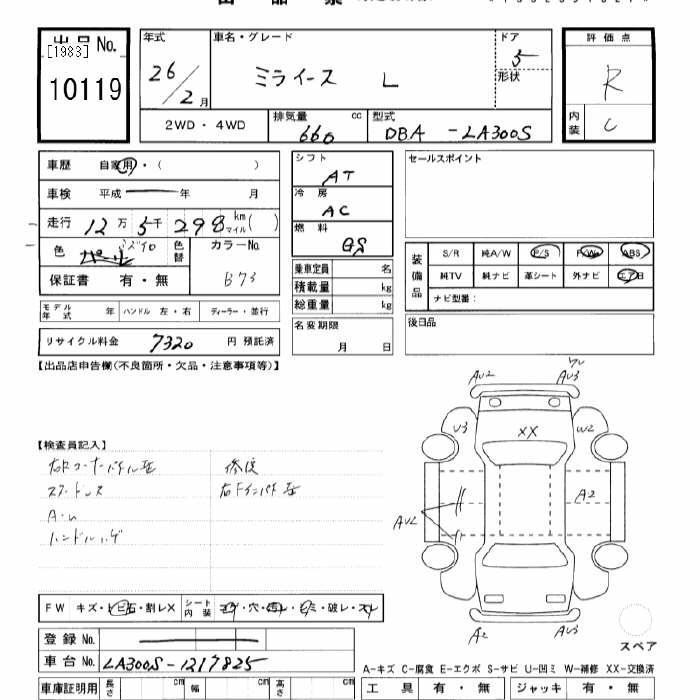 出品No.
[1983]
10119
年式
26/2月
車名・グレード
ミライース L
ドア
5
形状
評価点
R
内装
C
2WD・4WD
排気量 cc
660
型式
DBA-LA300S
車歴 自家用・( )
車検 平成 年 月
走行 12万5千298 km マイル( )
色 パール ミズイロ
色替
カラーNo.
B73
保証書 有・無
シフト
AT
冷房
AC
燃料
GS
乗車定員 名
積載量 kg
総重量 kg
名変期限
月 日
セールスポイント
装備品
S/R 純A/W P/S P/W ABS
純TV 純ナビ 革シート 外ナビ エアB
ナビ型番:
後日品
モデル年式 年 ハンドル 左・右 ディーラー・並行
リサイクル料金 7320 円 預託済
【出品店申告欄(不良箇所・欠品・注意事項等)】
【検査員記入】
修復
ハンドルハゲ
AU2
AU3
U3
XX
W2
A2
AU2
A2
AU3
スペア
FW キズ・トビ石・割レX
シート内装 コゲ・穴・汚レ・シミ・破レ・スレ
登録No.
車台No. LA300S-1217825
A-キズ C-腐食 E-エクボ S-サビ U-凹ミ W-補修 XX-交換済
車庫証明用 長さ cm 幅 cm 高さ cm
工具 有・無 ジャッキ 有・無